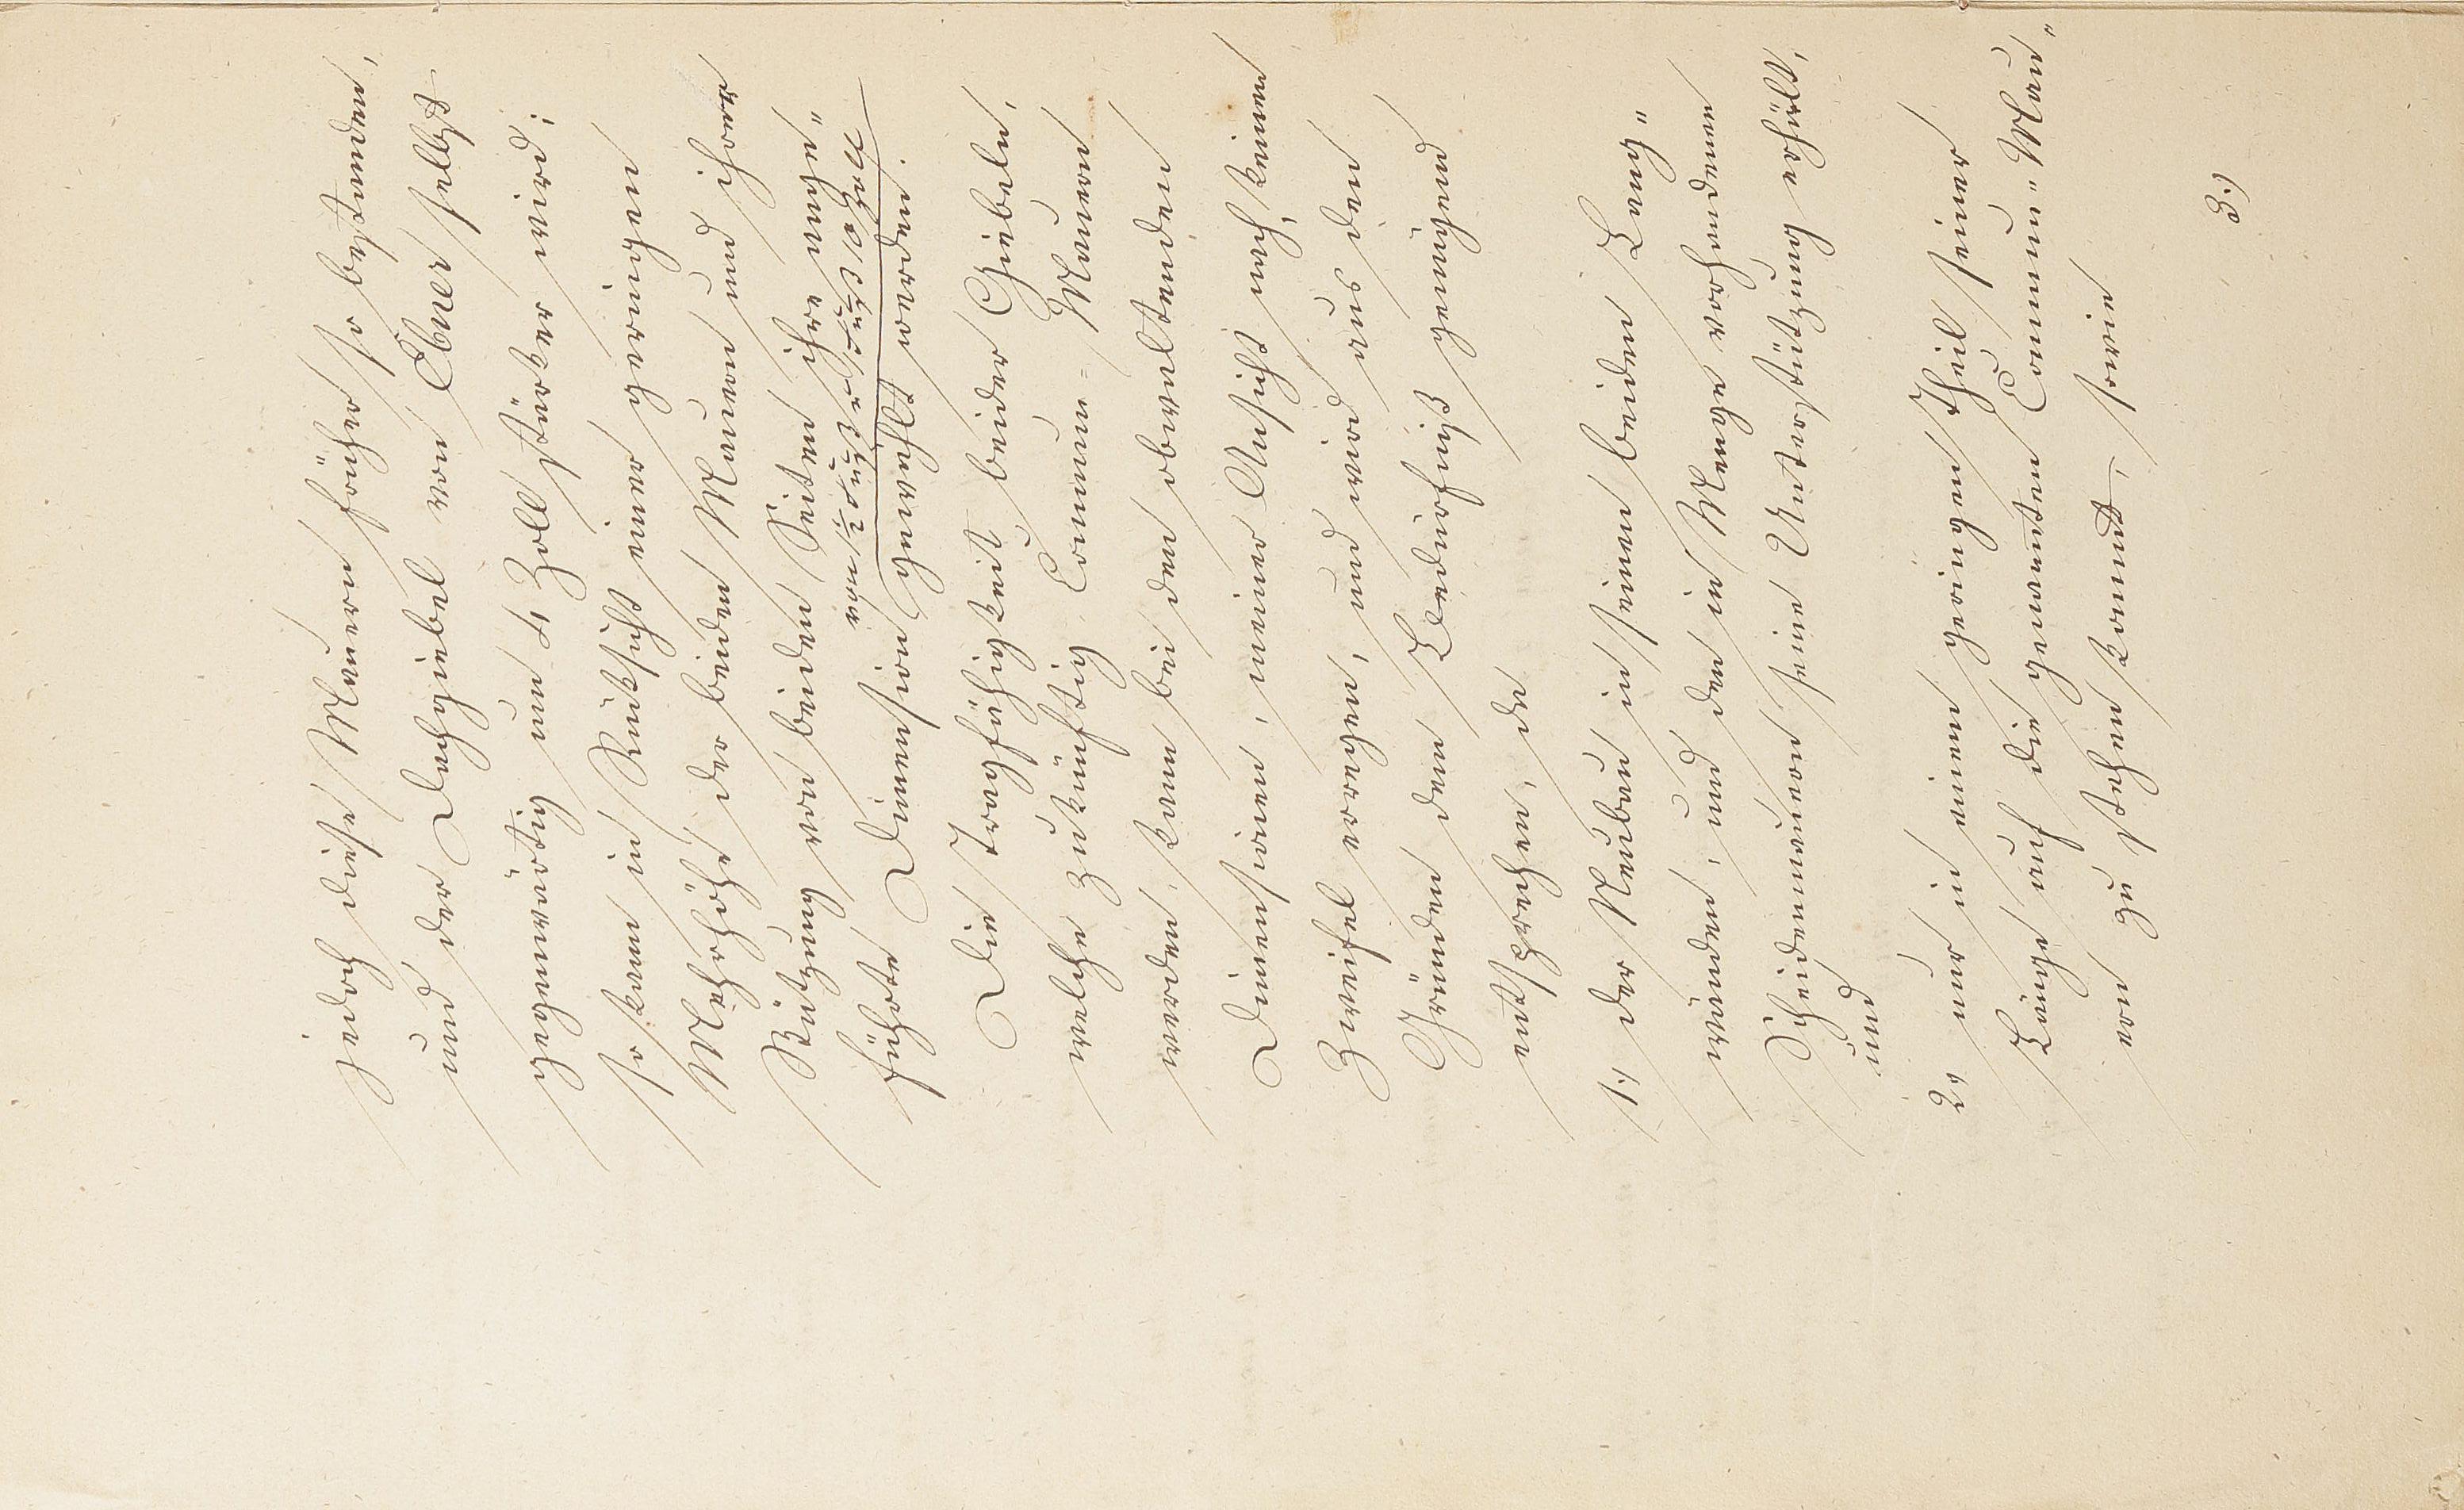 jedoch diese Mauern früher so bestanden,
und der Dachgiebel von Ebner selbst
gegenwärtig um 4 Zoll stärker wird;
so kann in Rüksicht einer geringen
Mehrhöhe der beiden Mauern und ihrer
Stützung von beiden Seiten ihre ange„
von 1½ Fuß
führte Dimension gewählt werden.
Die Tragfähigkeit beider Giebeln,
welche zukünftig Commun= Mauern
werden, kann bei den obwaltenden
Dimensionen, meiner Ansicht nach, keinen
Zweifel erregen, und wird aus den
Gründen dem Bedürfniß genügend
entsprechen, da
1.) der Neubau in seinen beiden Lang„
wänden, und den in Menge vorhandenen
Scheidemauern seine Unterstützung erhält,
und
2.) nur in einem geringen Theil seiner
Länge auf die genannten Commun„Mau„
ern zu stehen kommt, sowie
3.)